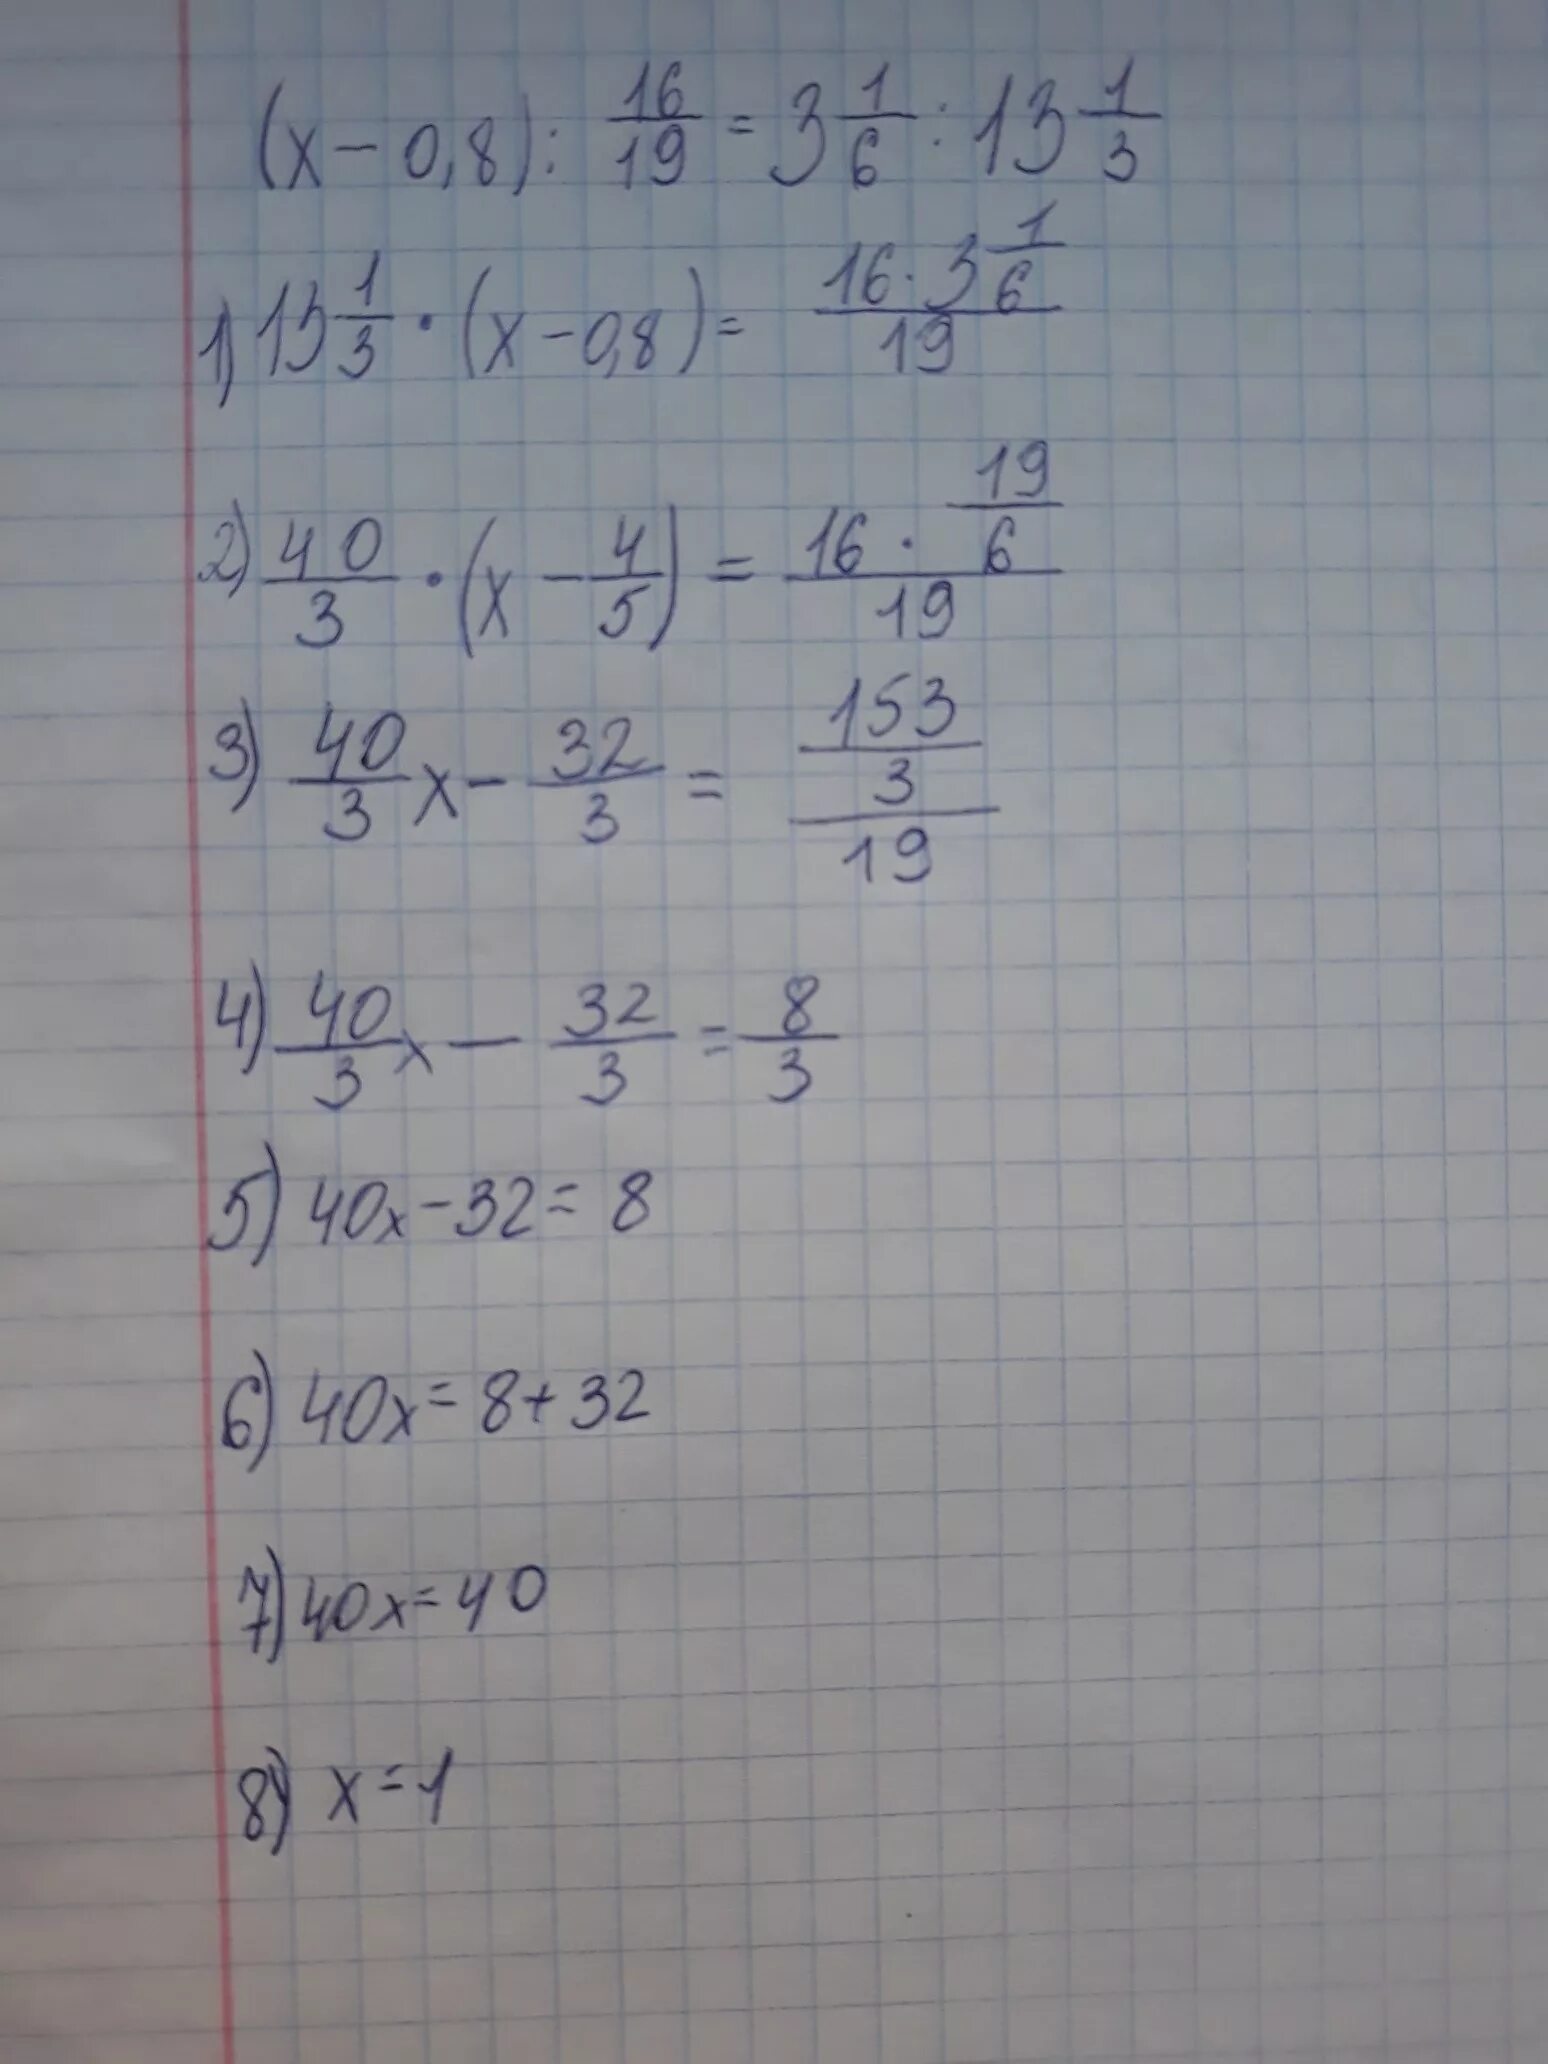 (x-0,8): 16/19 = 3 1/6 : 13 1/3
1) 13 1/3 · (x-0,8) = (16·3 1/6)/19
2) 40/3 · (x - 4/5) = (16 · 19/6)/19
3) 40/3 x - 32/3 = (153/3)/19
4) 40/3 x - 32/3 = 8/3
5) 40x-32=8
6) 40x=8+32
7) 40x=40
8) x=1